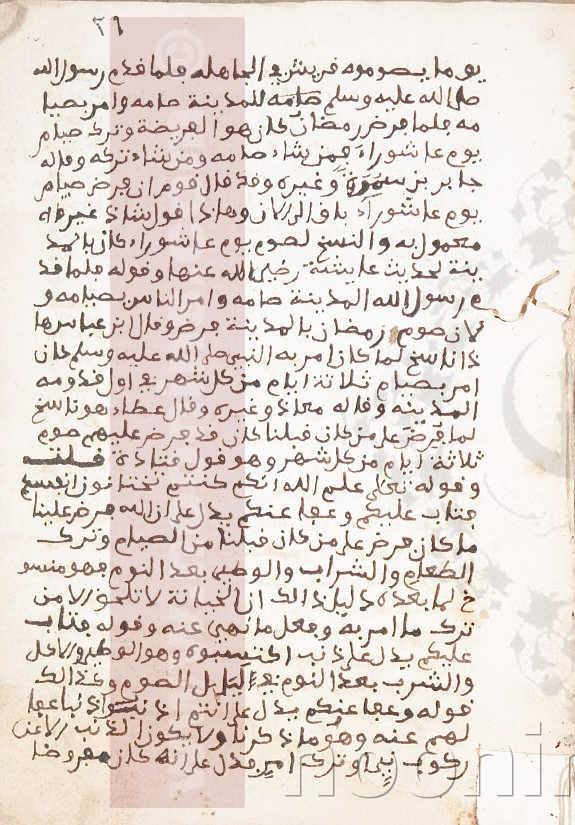 ٢٩
يوما يصومه قريش في الجاهلية فلما قدم رسول الله
صلى الله عليه وسلم صامه للمدينة صامه وامر بصيا
مه فلما فرض رمضان كان هو الفريضة وترك صيام
يوم عاشوراء فمن شاء صامه ومن شاء تركه وقاله
جابر بن سمرة وغيره وقد قال قوم ان فرض صيام
يوم عاشوراء باق الى الان وهاذا قول شاذ غير
معمول به والنسخ لصوم يوم عاشوراء كان بالمد
ينة لحديث عايشة رضي الله عنها وقوله فلما قد
م رسول الله المدينة صامه وامر الناس بصيامه و
لان صوم رمضان بالمدينة فرض وقال ابن عباس ها
ذا ناسخ لما كان امر به النبي صلى الله عليه وسلم كان
امر بصيام ثلاثة ايام من كل شهر في اول قدومه
المدينة وقاله معاذ وغيره وقال عطاء هو ناسخ
لما فرض على من كان قبلنا كان قد فرض عليهم صوم
ثلاثة ايام من كل شهر وهو قول قتادة قلت
وقوله تعالى علم الله انكم كنتم تختانون انفسكم
فتاب عليكم وعفا عنكم يدل على ان الله فرض علينا
ما كان فرض على من كان قبلنا من الصيام وترك
الطعام والشراب والوطي بعد النوم فهو منسو
خ لما بعده دليل ذالك ان الخيانة لا تلحق الا من
ترك ما امر به وفعل ما نهي عنه وقوله فتاب
عليكم يدل على ذنب اكتسبوه وهو الوطي والاكل
والشرب بعد النوم في ليل الصوم وكذالك
قوله وعفا عنكم يدل على انتم اذنبوا ذنبا عفا
لهم عنه وهو ما ذكرنا ولا يكون الذنب الا عن
ركوب نهي او ترك امر فدل على انه كان مفروضا
noormags